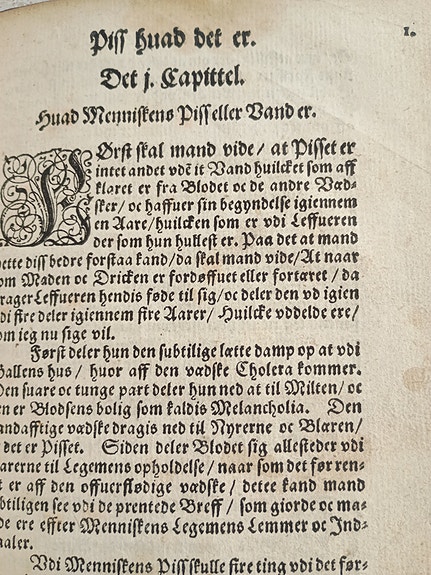 1.
Piss huad det er.
Det j. Capittel.
Huad Menniskens Piss eller Vand er.
FØrst skal mand vide / at Pisset er
intet andet vdē it Vand huilcket som aff
klaret er fra Blodet oc de andre Væd-
sker / oc haffuer sin begyndelse igiennem
en Aare / huilcken som er vdi Leffueren
der som hun hulest er. Paa det at mand
dette diss bedre forstaa kand / da skal mand vide / At naar
som Maden oc Dricken er fordøffuet eller fortæret / da
drager Leffueren hendis føde til sig / oc deler den vd igien
vdi fire deler igiennem fire Aarer / Huilcke vddelde ere /
som jeg nu sige vil.
Først deler hun den subtilige lætte damp op at vdi
Gallens hus / huor aff den vædske Cholera kommer.
Den suare oc tunge part deler hun ned at til Milten / oc
en er Blodsens bolig som kaldis Melancholia. Den
vandafftige vædske dragis ned til Nyrerne oc Blæren /
det er Pisset. Siden deler Blodet sig allesteder vdi
Aarerne til Legemens opholdelse / naar som det før ren-
set er aff den offuerflødige vædske / dette kand mand
subtiligen see vdi de prentede Breff / som giorde oc ma-
de ere effter Menniskens Legemens Lemmer oc Ind-
Vdi Menniskens Piss skulle fire ting vdi det før-